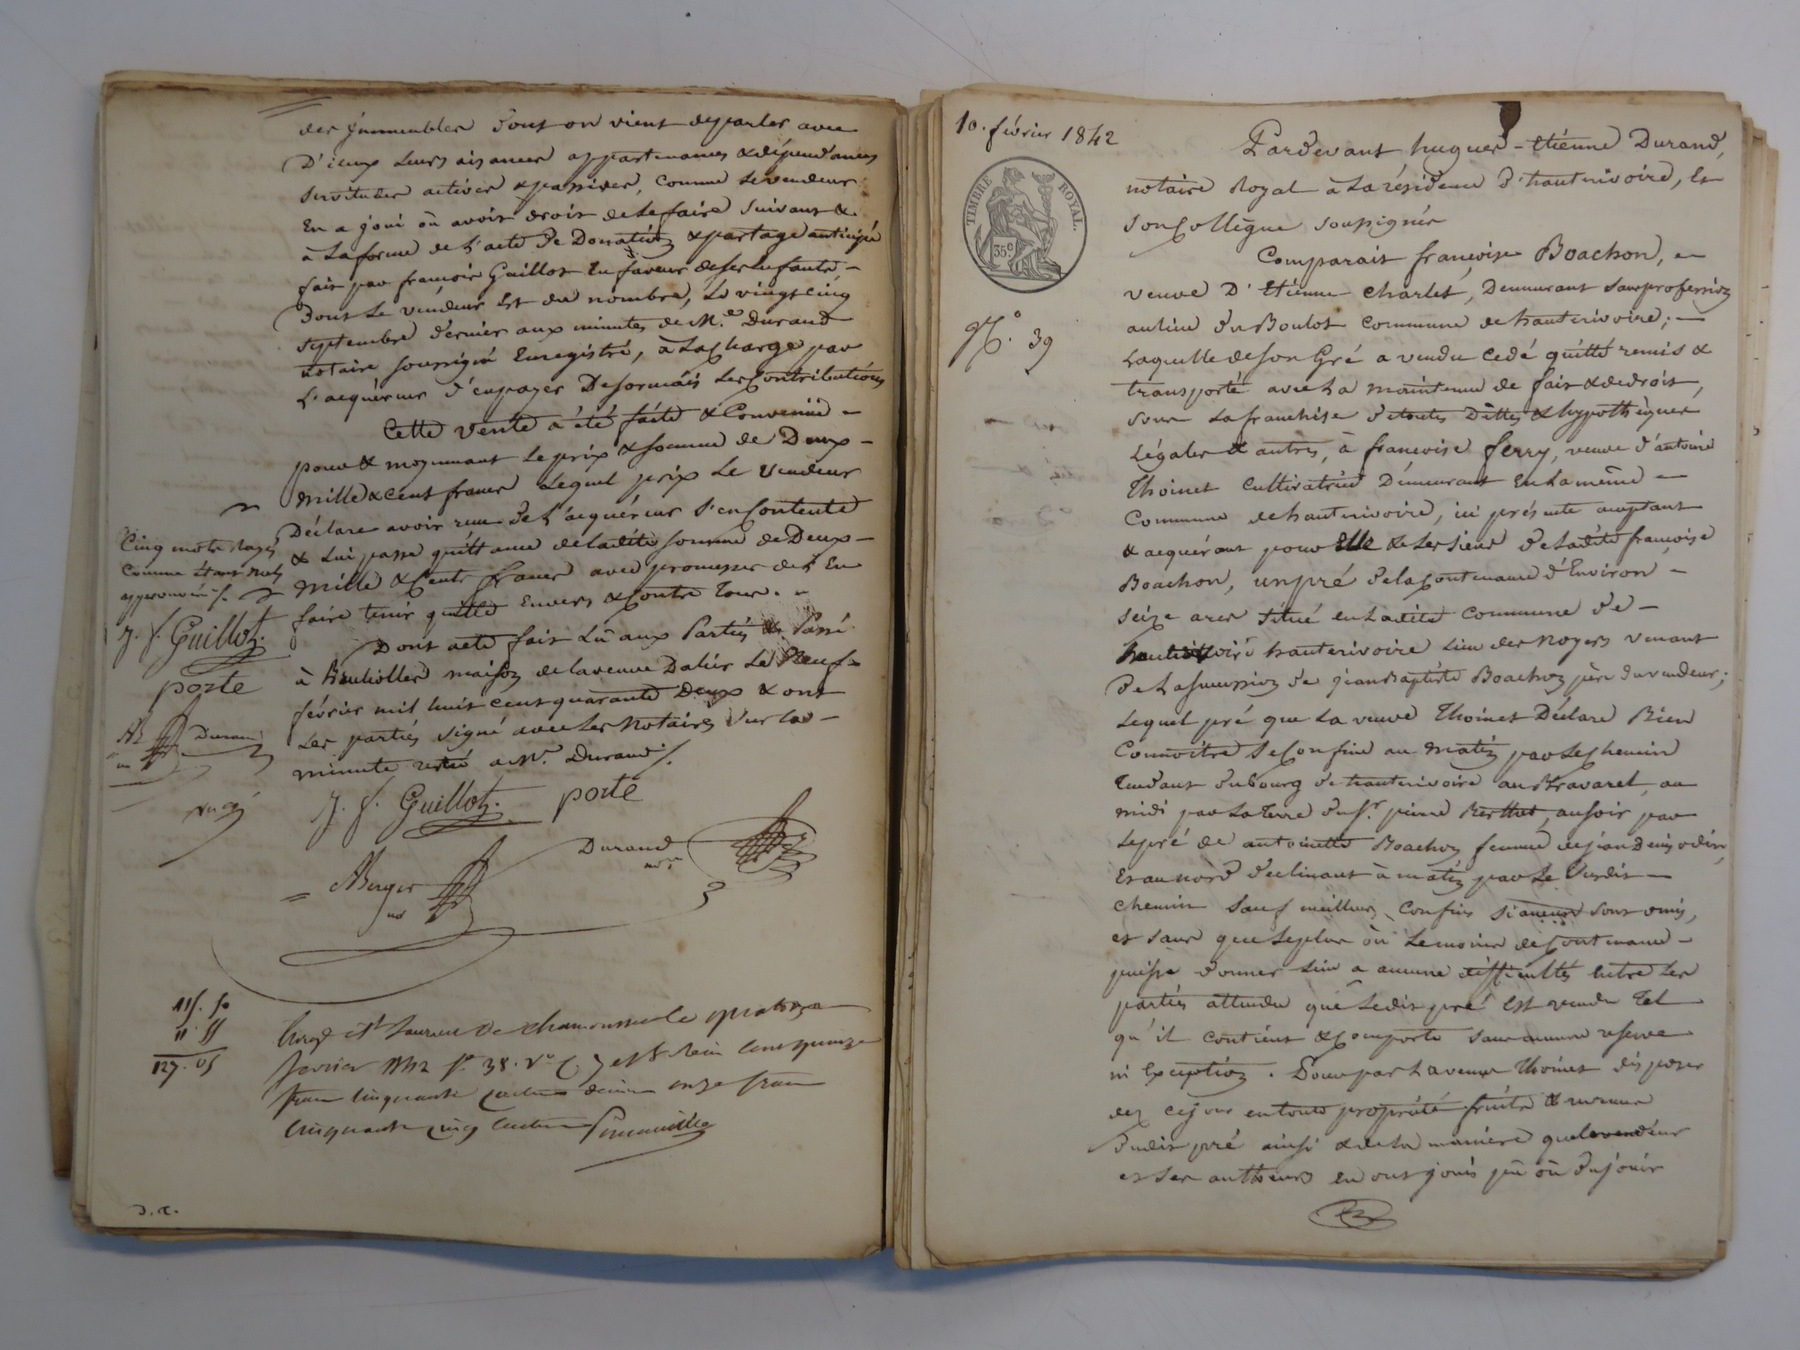 des immeubles dont on vient de parler avec
D'iceux leurs aisances appartenances & dépendances
servitudes actives & passives, comme le vendeur
En a joui où avoit droit de le faire suivant &
à La forme de L'acte De Donation & partage anticipé
fait par françois Guillot En faveur de ses Enfants -
Dont Le vendeur Est du nombre, Le vingt cinq
septembre dernier aux minutes de M.e Durand
notaire soussigné Enregistré, à La Charge par
L'acquéreur d'en payer Desormais Les Contributions
Cette vente a été faite & Convenue -
pour & moyennant Le prix & somme de Deux -
mille & cent francs Lequel prix Le vendeur
Déclare avoir reçu de L'acquéreur s'en Contente
& Lui passe quittance de Ladite somme de Deux -
mille & Cents francs avec promesse de L'En
faire tenir quitte Envers & Contre Tous. -
Dont acte fait Lu aux Parties & Passé
à Brullioles maison de la veuve Dalin Le Neuf -
février mil huit cent quarante Deux & ont
Les parties signé avec Les Notaires sur La -
minute restée à M.e Durand /.
Cinq mots rayés
Comme étant nuls
approuvés /.
J. f. Guillot.
porte
Durand
J. f. Guillot. porte
Durand
nre
ABerger
nre
115. 50
11. 55
127. 05
Enregé à St Laurent de chamousset le quatorze
février 1842 f.o 38. V.o C. 7 et 8. Reçu Cent quinze
francs Cinquante Centimes décime onze francs
Cinquante cinq Centimes
D. C.
10. février 1842
TIMBRE ROYAL
35c
N.o 39
Pardevant hugues-Etiénne Durand,
notaire Royal à La résidence d'hauterivoire, Et
son Collègue soussignés
Comparait françoise Boachon, -
veuve D'Etiénne Charlet, Demeurant sans profession
au lieu du Boulot Commune de hauterivoire; -
Laquelle de son Gré a vendu Cedé quitté remis &
transporté avec La maintenue de fait & de droit,
sous La franchise de toutes Dettes & hypothèques
Légales & autres, à françoise ferry, veuve d'antoine
Thoinet Cultivatrice Demeurant En La même -
Commune de hauterivoire, ici présente acceptant
& acquérant pour Elle & Les siens de Ladite françoise
Boachon, un pré de la Contenance d'Environ -
seize ares situé en Ladite Commune de -
hauterivoire hauterivoire Lieu des Noyers venant
de La succession de jean Baptiste Boachon père du vendeur;
Lequel pré que La veuve Thoinet Déclare Bien
Connoitre se Confine au matin par Le Chemin
Tendant du bourg de hauterivoire au Bravaret, au
midi par La Terre du S.r pierre Berthet, au soir par
Le pré de antoinette Boachon femme de jean Denis odin,
Et au nord declinant à matin par Le susdit -
chemin sauf meilleurs Confins si aucuns sont omis,
et sans que Le plus où Le moins de Contenance -
puisse donner Lieu à aucune difficultés Entre Les
parties attendu que Ledit pré Est vendu Tel
qu'il Contient & Comporte sans aucune réserve
ni Exception. Pour par La veuve Thoinet disposer
dez ce jour en toute propriété fruits & revenus
dudit pré ainsi & de La manière que le vendeur
et ses autheurs en ont jouis pû où dû jouir